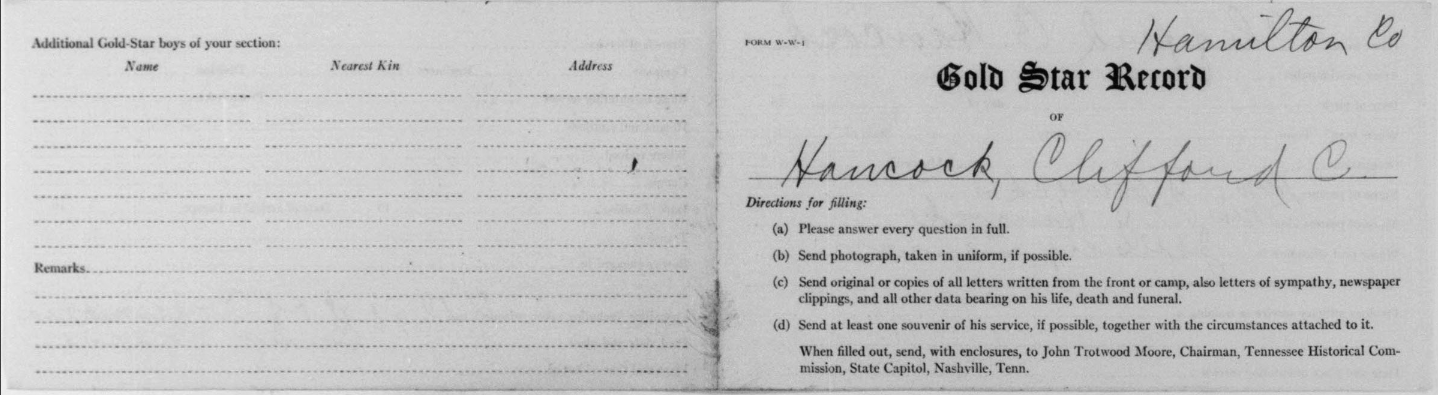 Additional Gold-Star boys of your section:
Name Nearest Kin Address
Remarks
FORM W-W-1
Hamilton Co
Gold Star Record
OF
Hancock, Clifford C.
Directions for filling:
(a) Please answer every question in full.
(b) Send photograph, taken in uniform, if possible.
(c) Send original or copies of all letters written from the front or camp, also letters of sympathy, newspaper
clippings, and all other data bearing on his life, death and funeral.
(d) Send at least one souvenir of his service, if possible, together with the circumstances attached to it.
When filled out, send, with enclosures, to John Trotwood Moore, Chairman, Tennessee Historical Com-
mission, State Capitol, Nashville, Tenn.